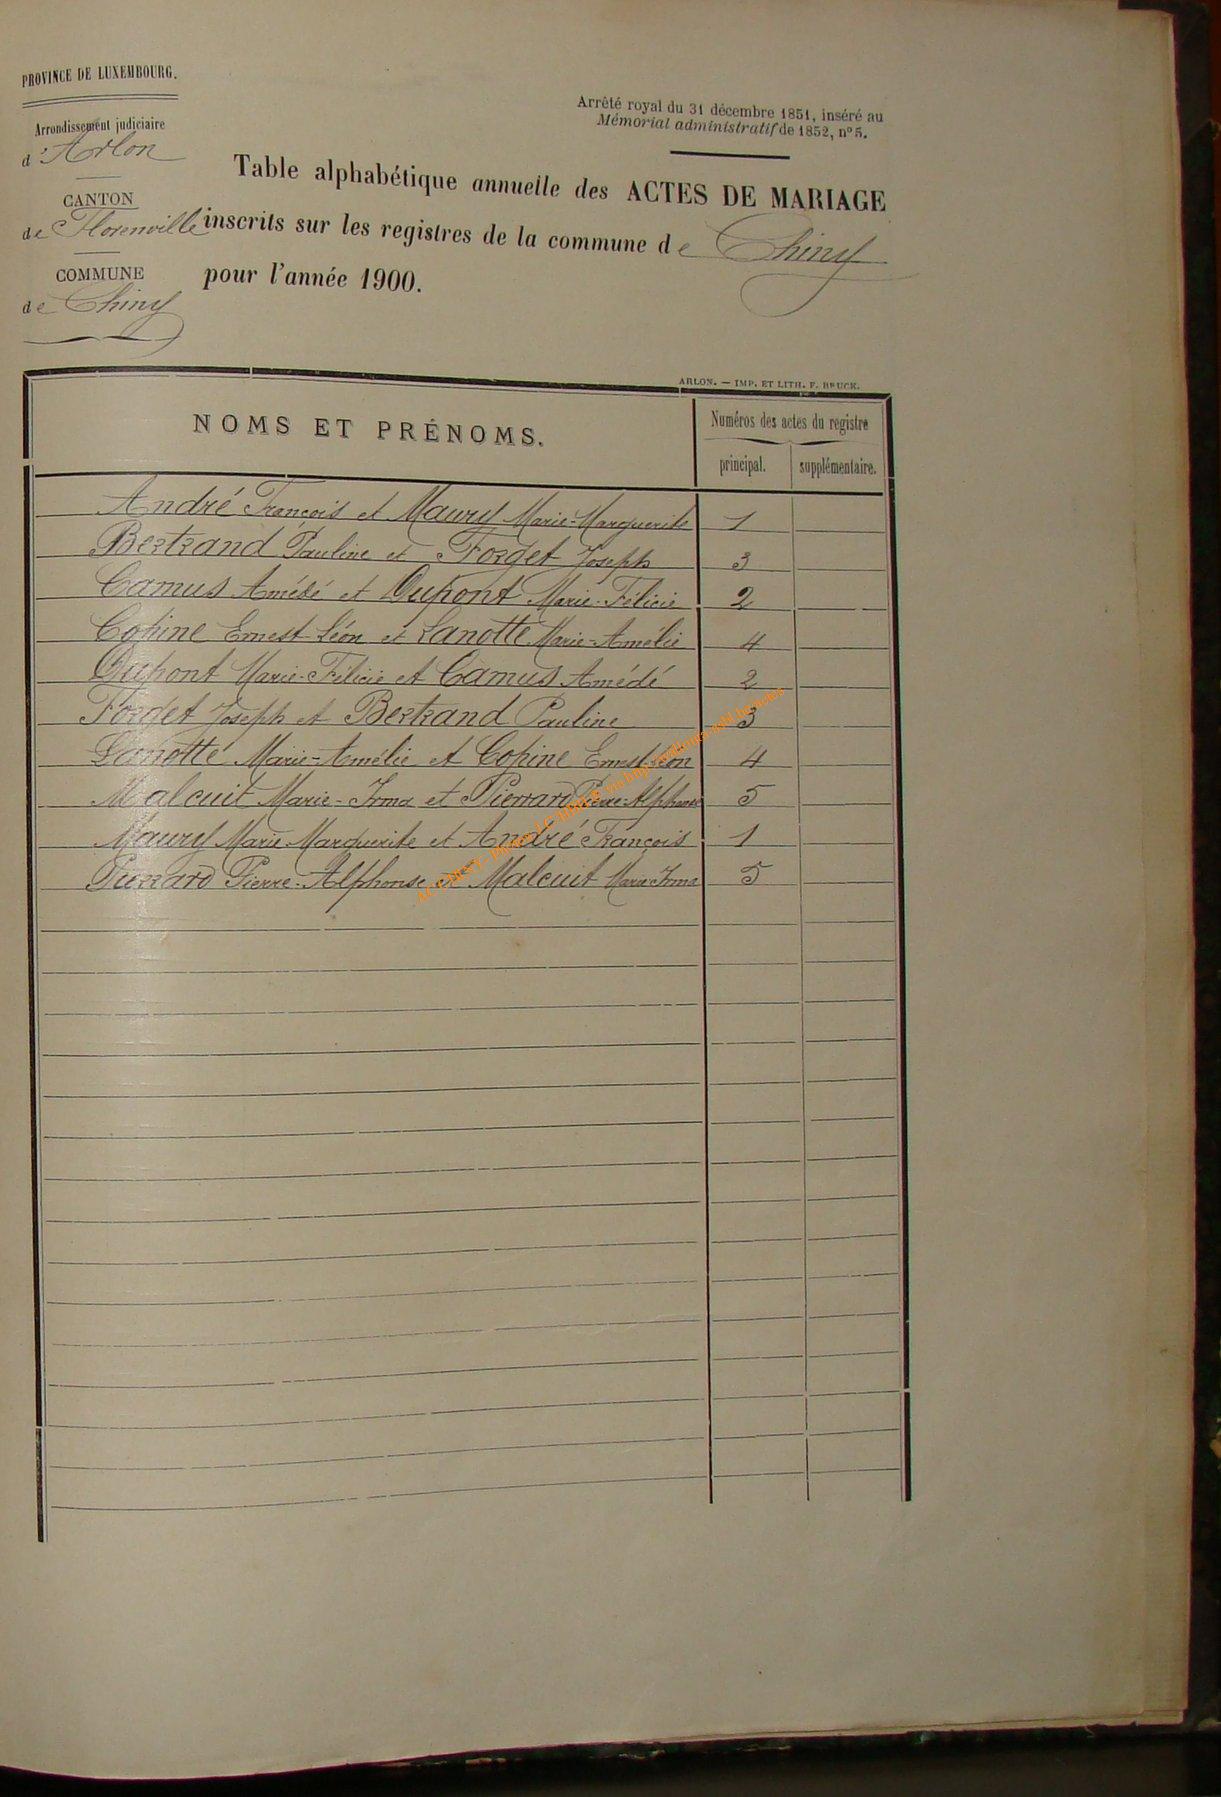 PROVINCE DE LUXEMBOURG.
Arrondissement judiciaire
d'Arlon
CANTON
de Florenville
COMMUNE
de Chiny
Arrêté royal du 31 décembre 1851, inséré au
Mémorial administratif de 1852, n° 5.
Table alphabétique annuelle des ACTES DE MARIAGE
inscrits sur les registres de la commune de Chiny
pour l'année 1900.
ARLON. — IMP. ET LITH. F. BRUCK.
NOMS ET PRÉNOMS. Numéros des actes du registre
principal. supplémentaire.
André François et Maury Marie-Marguerite 1
Bertrand Pauline et Forget Joseph 3
Camus Amédé et Dupont Marie-Félicie 2
Cophine Ernest-Léon et Lanotte Marie-Amélie 4
Dupont Marie-Félicie et Camus Amédé 2
Forget Joseph et Bertrand Pauline 3
Lanotte Marie-Amélie et Cophine Ernest-Léon 4
Malcuit Marie-Irma et Pierrard Pierre-Alphonse 5
Maury Marie Marguerite et André François 1
Pierrard Pierre-Alphonse et Malcuit Marie-Irma 5